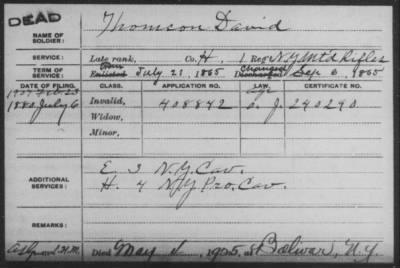 DEAD
NAME OF SOLDIER: Thomson David
SERVICE: Late rank, Co. H. 1 Reg. N.Y. Mtd Rifles
TERM OF SERVICE: Enlisted July 21, 1865 Discharged Sep 6, 1865
DATE OF FILING. CLASS. APPLICATION NO. LAW. CERTIFICATE NO.
1880 July 6 Invalid, 408842 240290
Widow,
Minor,
ADDITIONAL SERVICES: E. 3 N.Y. Cav.
H. 4 N.Y. Pro. Cav.
REMARKS:
Died May 1905, at Bolivar, N.Y.